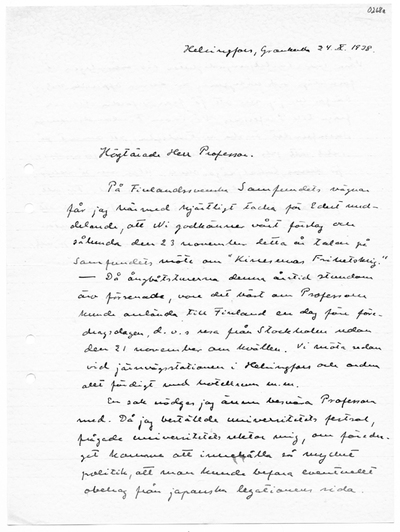 0268a
Helsingfors, Grankulla 24.X.1938.
Högtärade Herr Professor.
På Finlandssvenska Samfundets vägnar
får jag härmed hjärtligt tacka för Edert med-
delande, att Ni godkänner vårt förslag och
således den 23 november detta år talar på
Samfundets möte om "Kinesernas Frihetskrig."
— Då ångbåtsturerna denna årtid stundom
äro försenade, vore det bäst om Professorn
kunde anlända till Finland en dag före före-
dragsdagen, d.v.s. resa från Stockholm redan
den 21 november om kvällen. Vi möta redan
vid järnvägsstationen i Helsingfors och ordna
allt färdigt med hotellrum m.m.
En sak nödgas jag ännu besvära Professorn
med. Då jag beställde universitetets festsal,
frågade universitetets rektor mig, om föredra-
get komme att innehålla så mycket
politik, att man kunde befara eventuellt
obehag från japanska legationens sida.